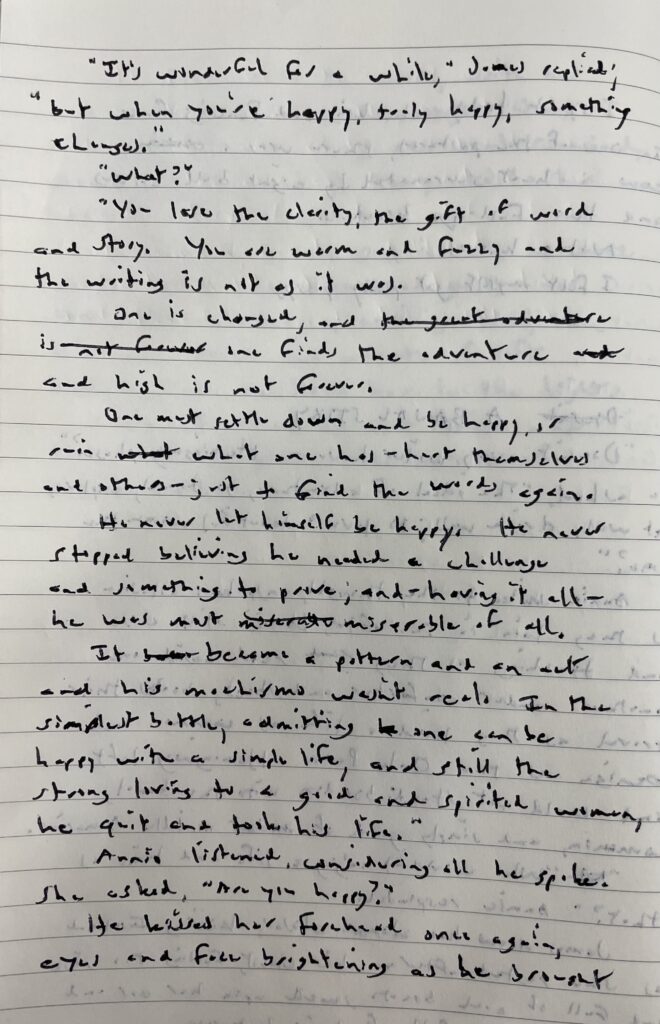 "It's wonderful for a while," James replied,
"but when you're happy, truly happy, something
changes."
"What?"
"You lose the clarity, the gift of word
and story. You are warm and fuzzy and
the writing is not as it was.
One is changed, and the great adventure
is not forever one finds the adventure and
and high is not forever.
One must settle down and be happy, or
ruin what what one has-hurt themselves
and others-just to find the words again.
He never let himself be happy. He never
stopped believing he needed a challenge
and something to prove; and-having it all-
he was most miserable of all.
It became a pattern and an act
and his machismo wasn't real. In the
simplest battle, admitting one can be
happy with a simple life, and still the
strong loving to a good and spirited woman,
he quit and took his life."
Annie listened, considering all he spoke.
She asked, "Are you happy?"
He kissed her forehead once again,
eyes and face brightening as he brought